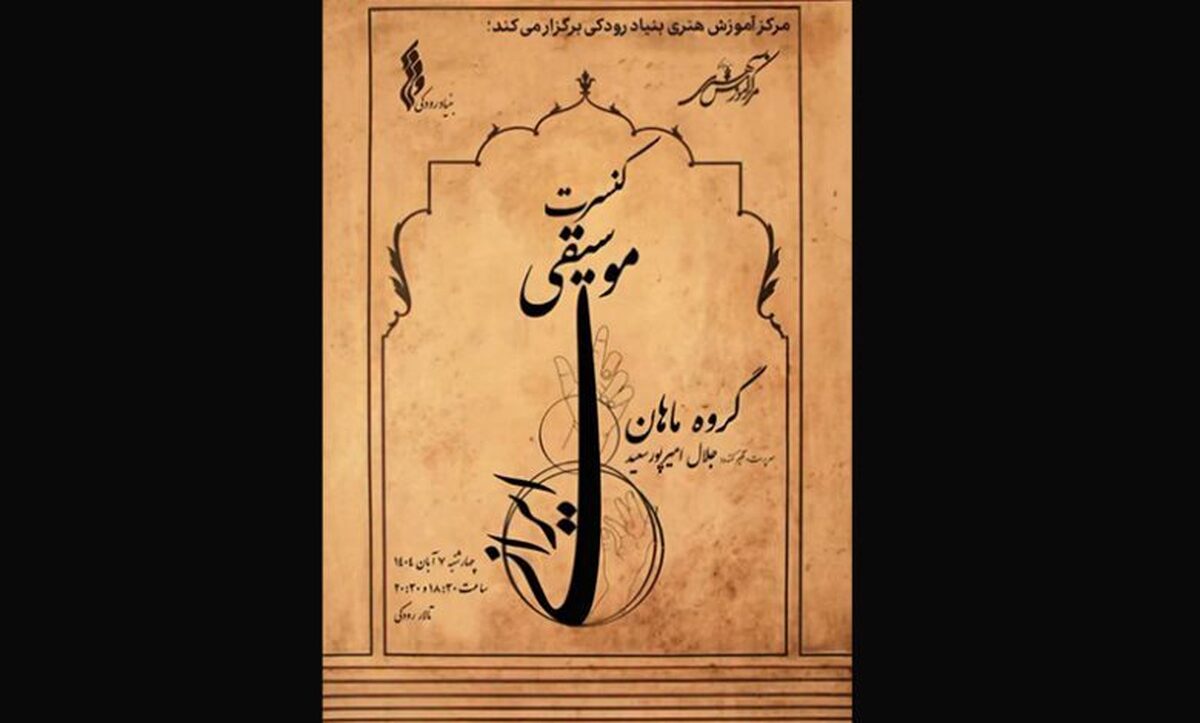 مرکز آموزش هنری بنیاد رودکی برگزار می‌کند؛
مرکز آموزش هنری
بنیاد رودکی
کنسرت
موسیقی
ایرانی
گروه ماهان
سرپرست و تنظیم کننده: جلال امیرپورسعید
چهارشنبه ۷ آبان ۱۴۰۴
ساعت ۱۸:۳۰ و ۲۰:۳۰
تالار رودکی